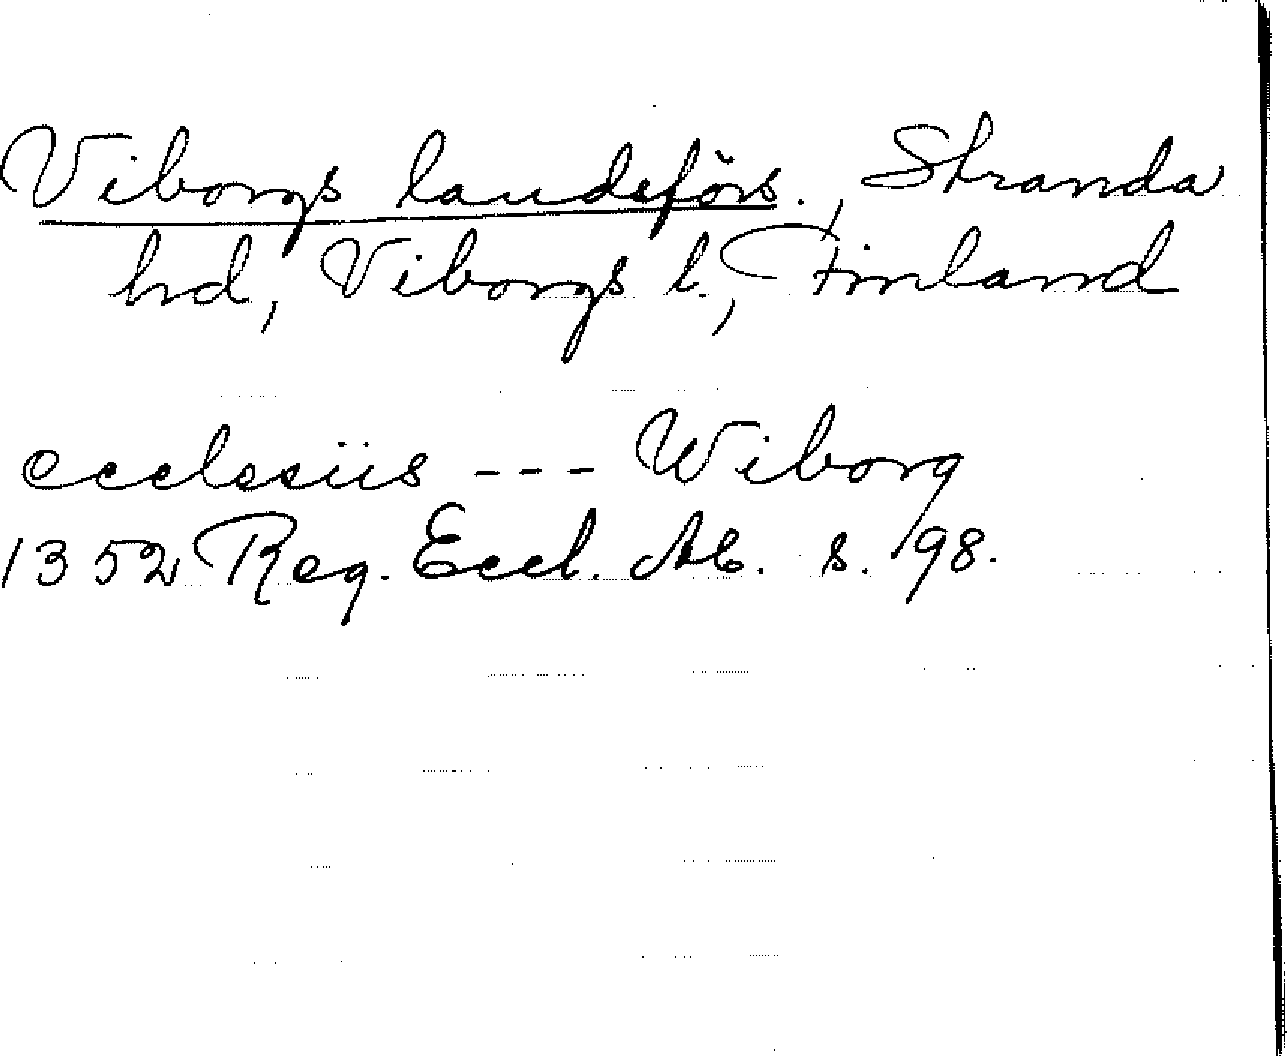 Viborgs landsförs., Stranda
hd, Viborgs l., Finland
ecclesiis --- Wiborg
1352 Reg. Eccl. Ab. s. 98.